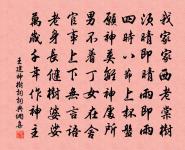 我家家西老棠樹
須晴即晴雨即雨
四時八節上杯盤
願神莫離神處所
男不著丁女在舍
官事上下無言語
老身長健樹婆娑
萬歲千年作神主
王建神樹詞